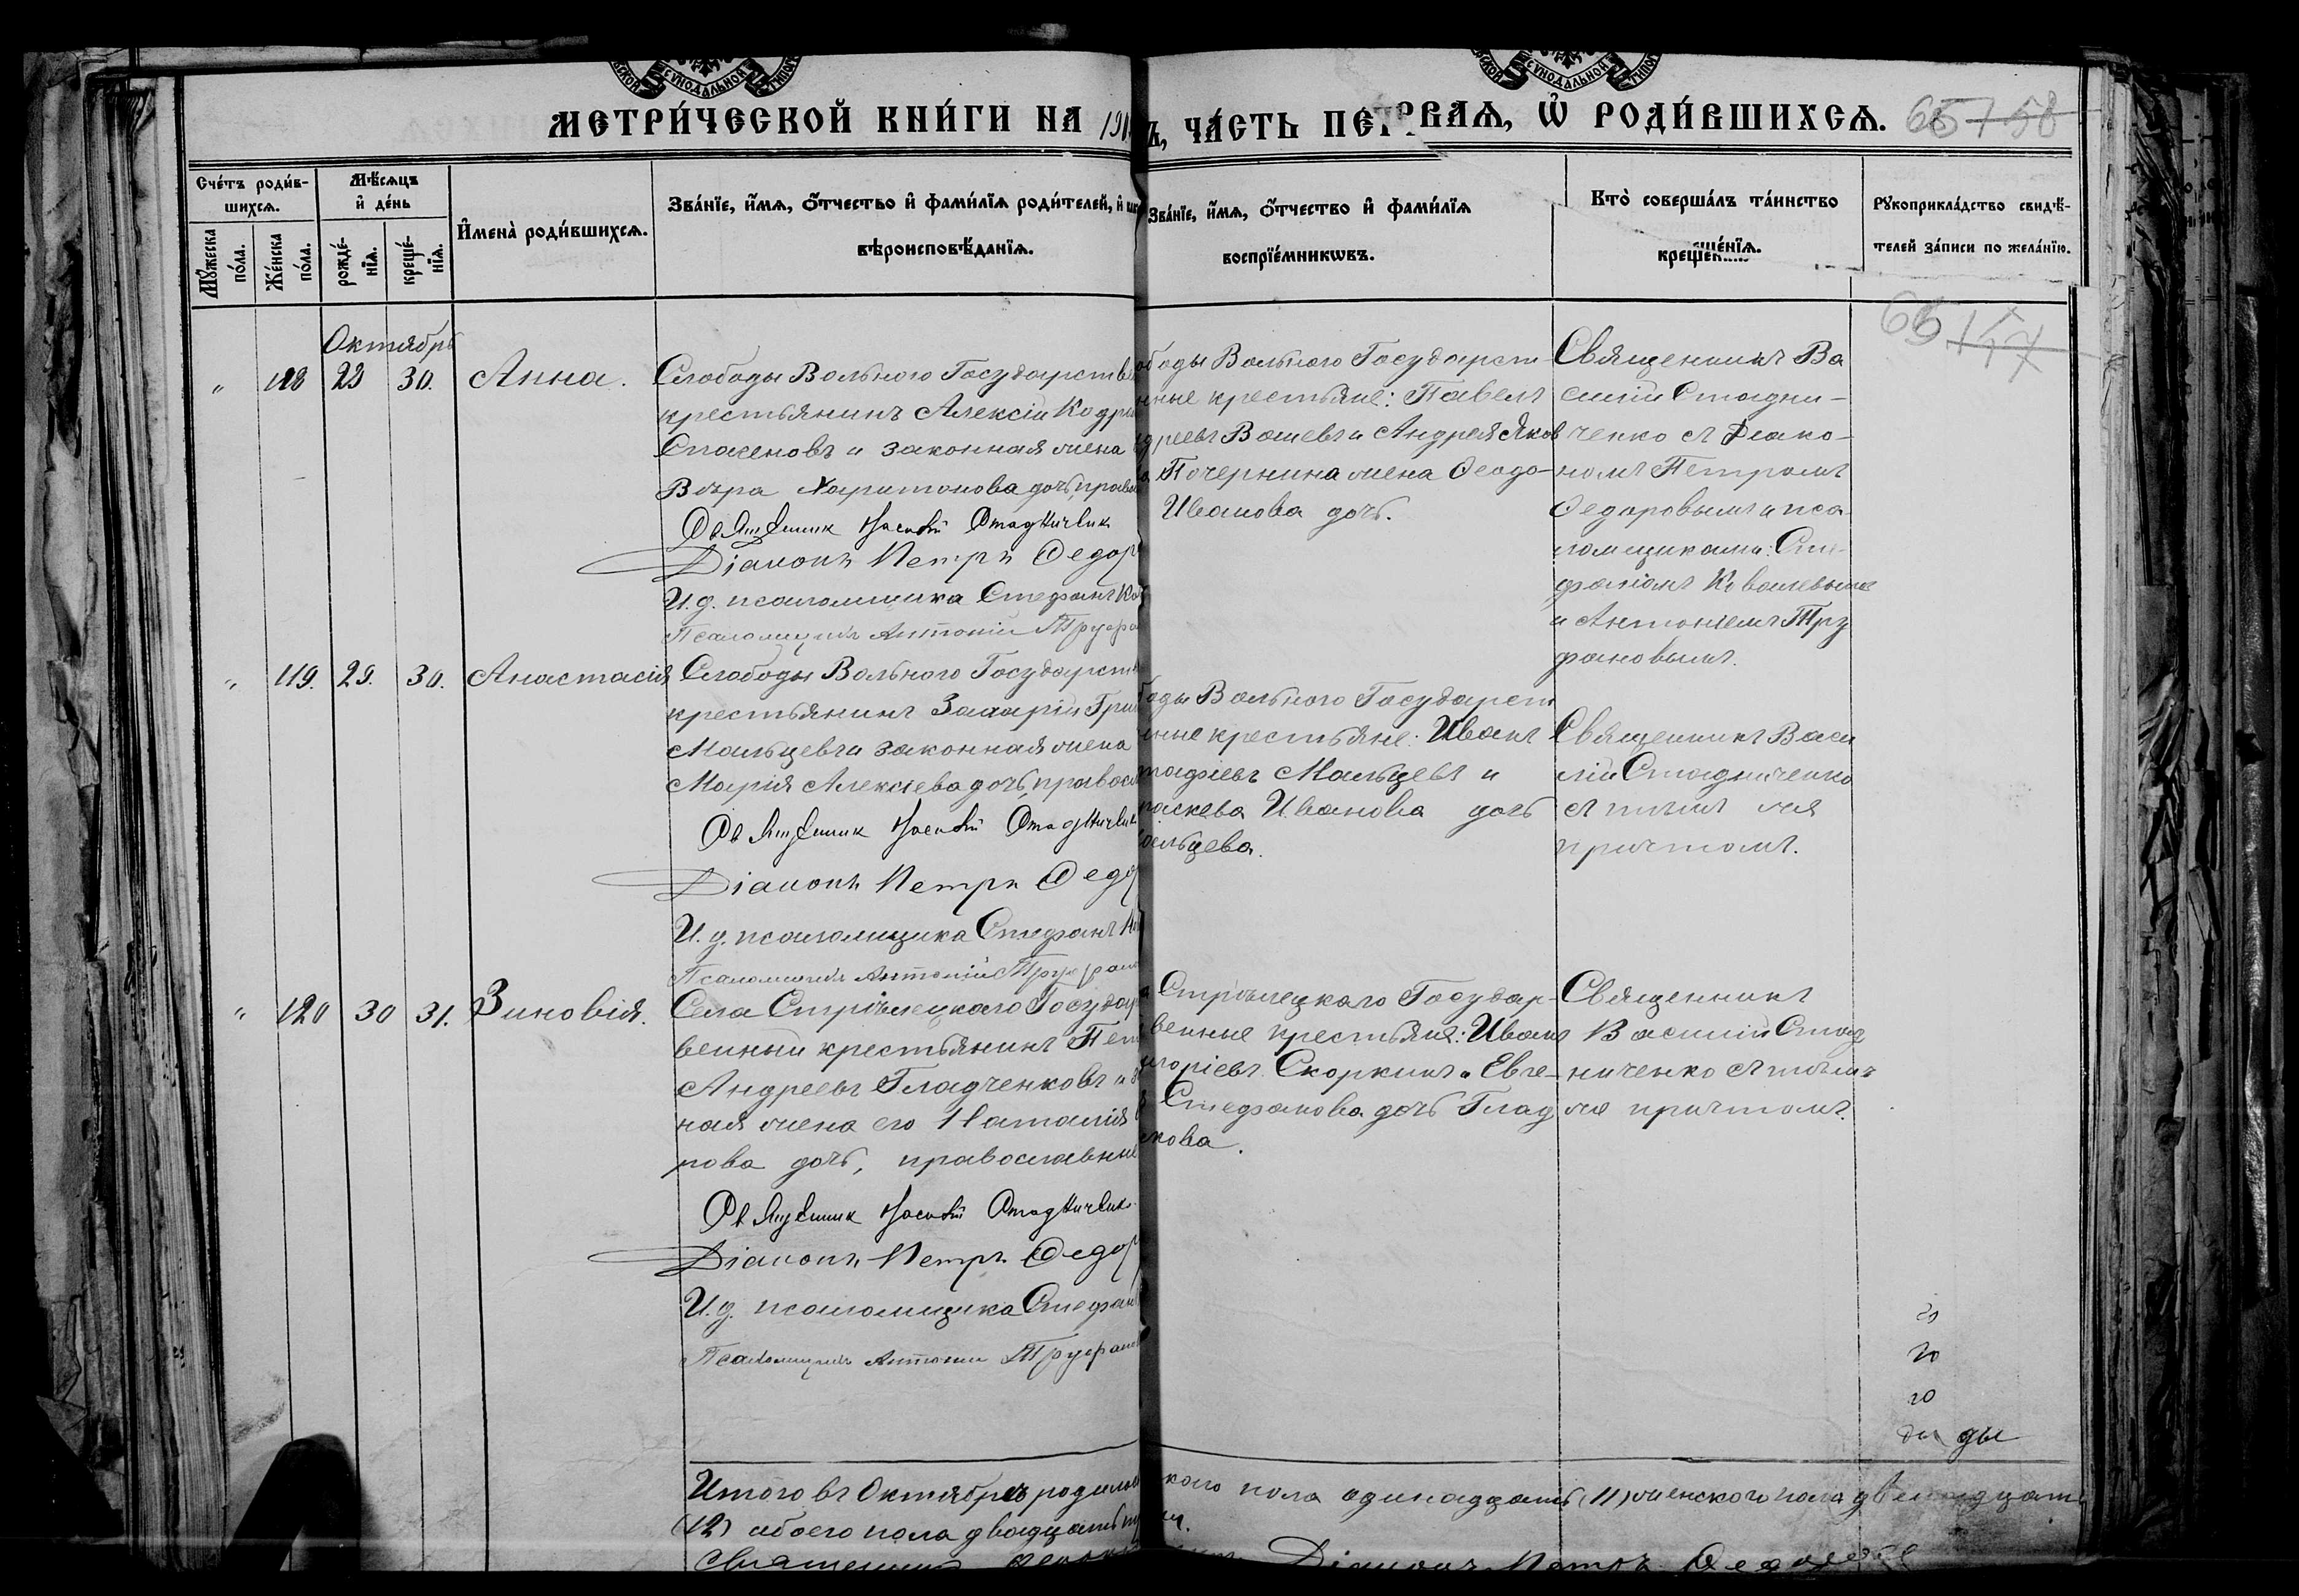 МЕТРИ́ЧЕСКОЙ КНИ́ГИ НА
Ъ, ЧА́СТЬ ПЕ РВАЯ, Ѡ҆ РОДИ́ВШИХСЯ.
Счéтъ роди́в-
шихся.
Мѣ́сяцъ
и҆ дéнь
Мꙋ́жеска
по́ла.
Жéнска
по́ла.
рождé-
нїя.
крещé-
нїя.
И҆мена̀ роди́вшихся.
Зва́нїе, и҆́мя, ѻ҆́тчество и҆ фами́лїя роди́телей, и҆
вѣроисповѣ́данїя.
Зва́нїе, и҆́мя, ѻ҆́тчество и҆ фами́лїя
воспрїе́мникѡвъ.
Кто̀ соверша́лъ та́инство
крещéнїя.
Рꙋкоприкла́дство свидѣ́-
телей за́писи по жела́нїю.
Октябрь
" 118 29 30. Анна.
Слободы Вольного Государств
крестьянинъ Алексій Кодра
Спасеновъ и законная жена
Вѣра Харитонова дочь, право
Священник Василій Стадничен
Діаконъ Петръ Федор
И. д. псаломщика Стефанъ Ко
Псаломщикъ Антоній Труфа
боды Вольного Государст-
нные крестьяне: Павелъ
дреевъ и Андрея Яков
Почернина жена Феодо-
Иванова дочь.
Священникъ Ва
силій Стадни-
ченко съ Діако-
номъ Петромъ
Федоровымъ и пса-
ломщиками: Сте-
фаномъ Ковалевымъ
и Антоніемъ Тру
фановымъ.
" 119. 29. 30. Анастасія
Слободы Вольного Государств
крестьянинъ Захарій Гри
Мальцевъ и законная жена
Марія Алексѣева дочь, правосл
Священник Василій Стадничен
Діаконъ Петръ Федо
И. д. псаломщика Стефанъ
Псаломщикъ Антоній Труфан
боды Вольного Государст
нные крестьяне: Иванъ
тафіевъ Мальцевъ и
раскева Иванова дочь
альцева.
Священникъ Васи
лій Стадниченко
съ тѣмъ же
причтомъ.
" 120 30 31. Зиновія.
Села Стрѣлецкаго Государ
венный крестьянинъ Пет
Андреевъ Гладченковъ и з
ная жена его Наталія
рова дочь, православные
Священник Василій Стадничен
Діаконъ Петръ Федор
И. д. псаломщика Стефан
Псаломщикъ Антоній Труфанов
Стрѣлецкаго Государ-
венные крестьяне: Иванъ
игоріевъ Скоркинъ и Евге-
Стефанова дочь Глад
нкова.
Священникъ
Василій Стад
ниченко съ тѣмъ
же причтомъ.
Итого въ Октябрѣ родилось
кого пола одинадцать (11) женского пола двенадцать
(12) обоего пола двадцать
Діаконъ Петръ Федоров